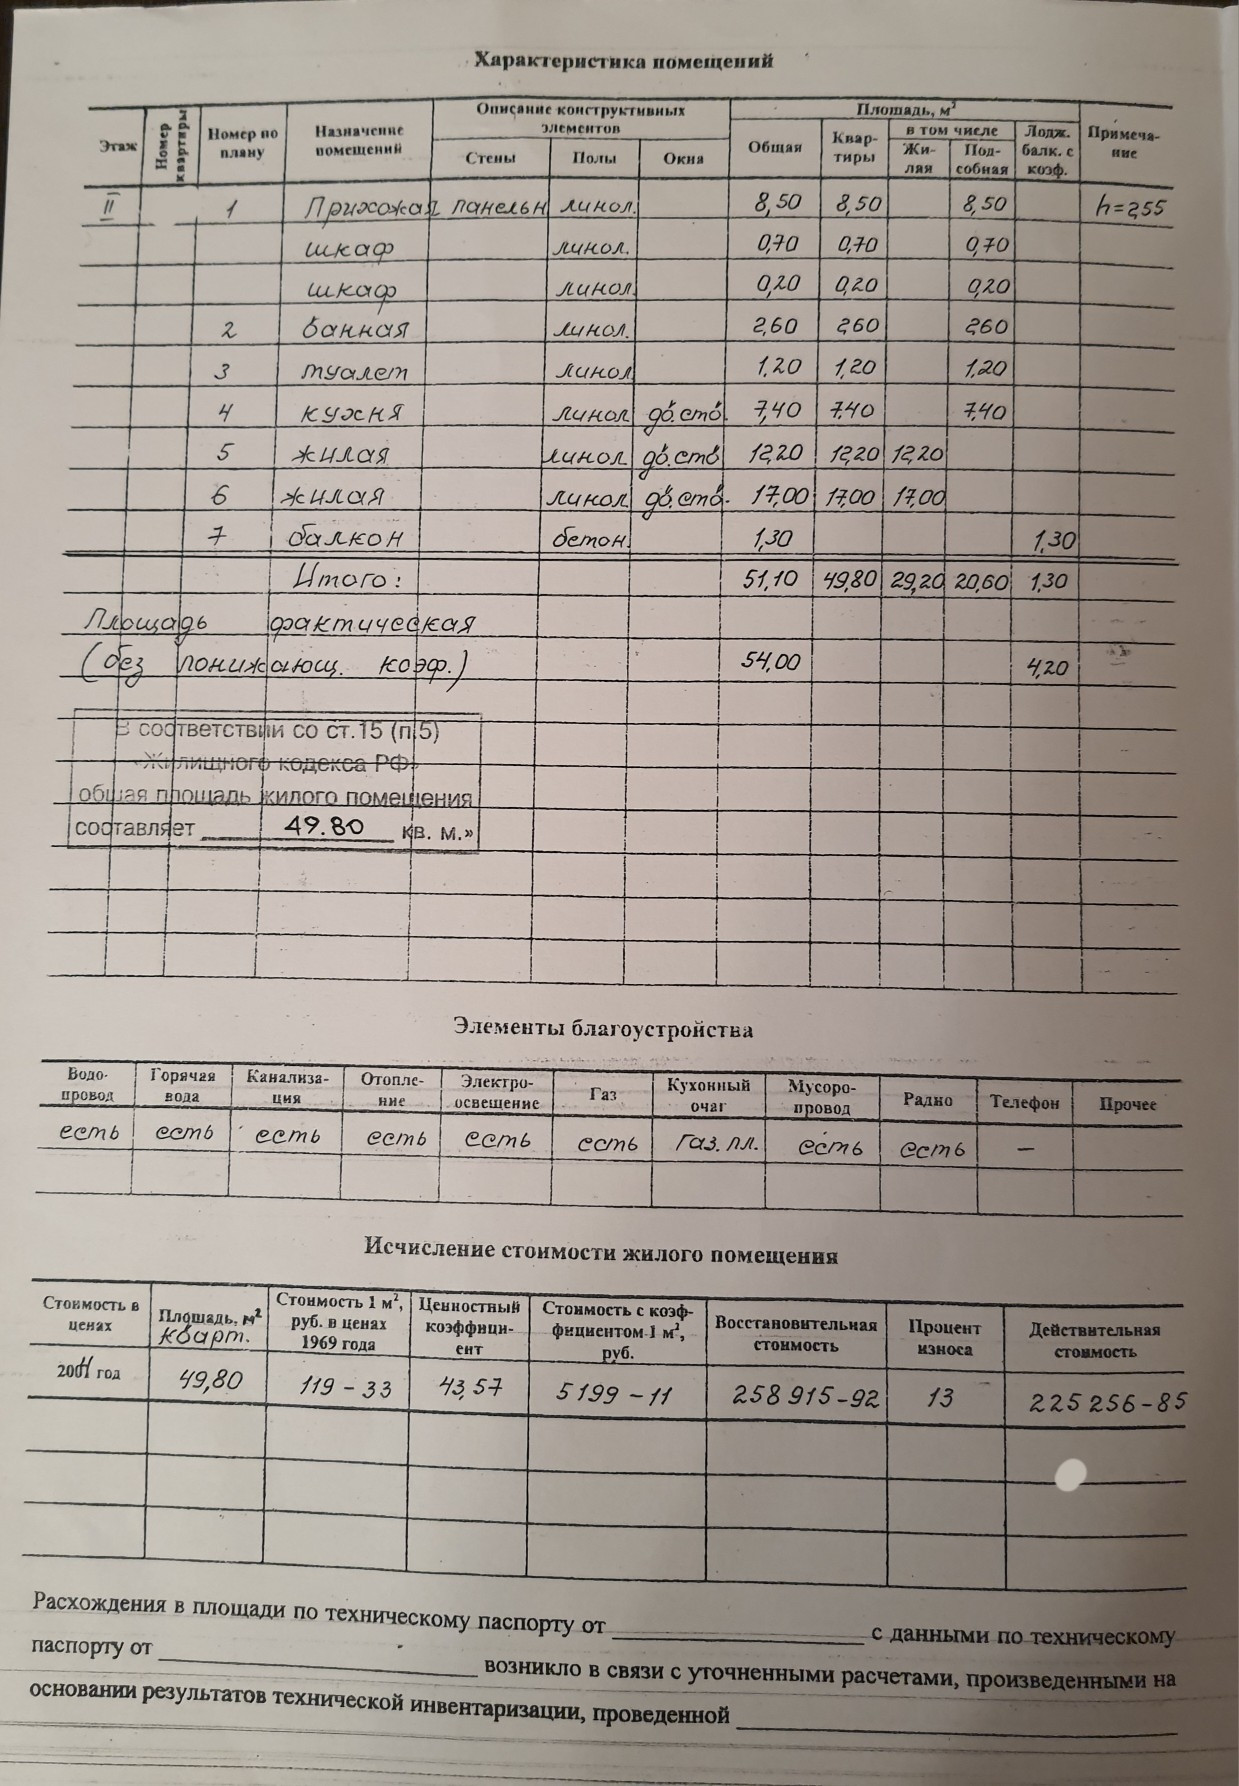 Характеристика помещений
Этаж Номер квартиры Номер по плану Назначение помещений Описание конструктивных элементов Площадь, м² Примечание
Стены Полы Окна Общая Квартиры в том числе Лодж. балк. с коэф.
Жилая Подсобная
II 1 Прихожая панельн линол. 8,50 8,50 8,50 h=2,55
шкаф линол. 0,70 0,70 0,70
шкаф линол 0,20 0,20 0,20
2 ванная линол. 2,60 2,60 2,60
3 туалет линол 1,20 1,20 1,20
4 кухня линол дв.ств. 7,40 7.40 7.40
5 жилая линол дв.ств 12,20 12,20 12,20
6 жилая линол дв.ств. 17,00 17,00 17,00
7 балкон бетон. 1,30 1,30
Итого: 51,10 49,80 29,20 20,60 1,30
Площадь фактическая
(без понижающ. коэф.) 54,00 4,20
В соответствии со ст.15 (п.5)
Жилищного кодекса РФ
общая площадь жилого помещения
составляет 49.80 кв. м.»
Элементы благоустройства
Водопровод Горячая вода Канализация Отопление Электроосвещение Газ Кухонный очаг Мусоропровод Радио Телефон Прочее
есть есть есть есть есть есть газ. пл. есть есть —
Исчисление стоимости жилого помещения
Стоимость в ценах Площадь, м² кварт. Стоимость 1 м², руб. в ценах 1969 года Ценностный коэффициент Стоимость с коэффициентом 1 м², руб. Восстановительная стоимость Процент износа Действительная стоимость
год 49,80 119 – 33 43,57 5199 – 11 258 915 – 92 13 225 256 – 85
Расхождения в площади по техническому паспорту от с данными по техническому
паспорту от возникло в связи с уточненными расчетами, произведенными на
основании результатов технической инвентаризации, проведенной